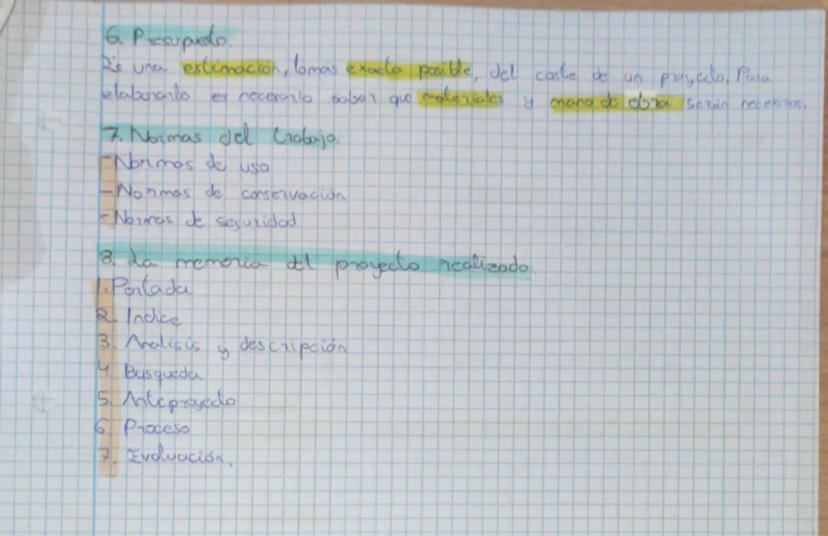 6. Presupuesto.
Es una estimación, lo mas exacta posible, del coste de un proyecto. Para
elaborarlo es necesario saber que materiales y mano de obra serán necesarios.
7. Normas del trabajo.
- Normas de uso
- Normas de conservación
- Normas de seguridad
8. La memoria del proyecto realizado.
1. Portada
2. Indice
3. Analisis y descripción
4. Busqueda
5. Anteproyecto
6 Proceso
7. Evaluación.